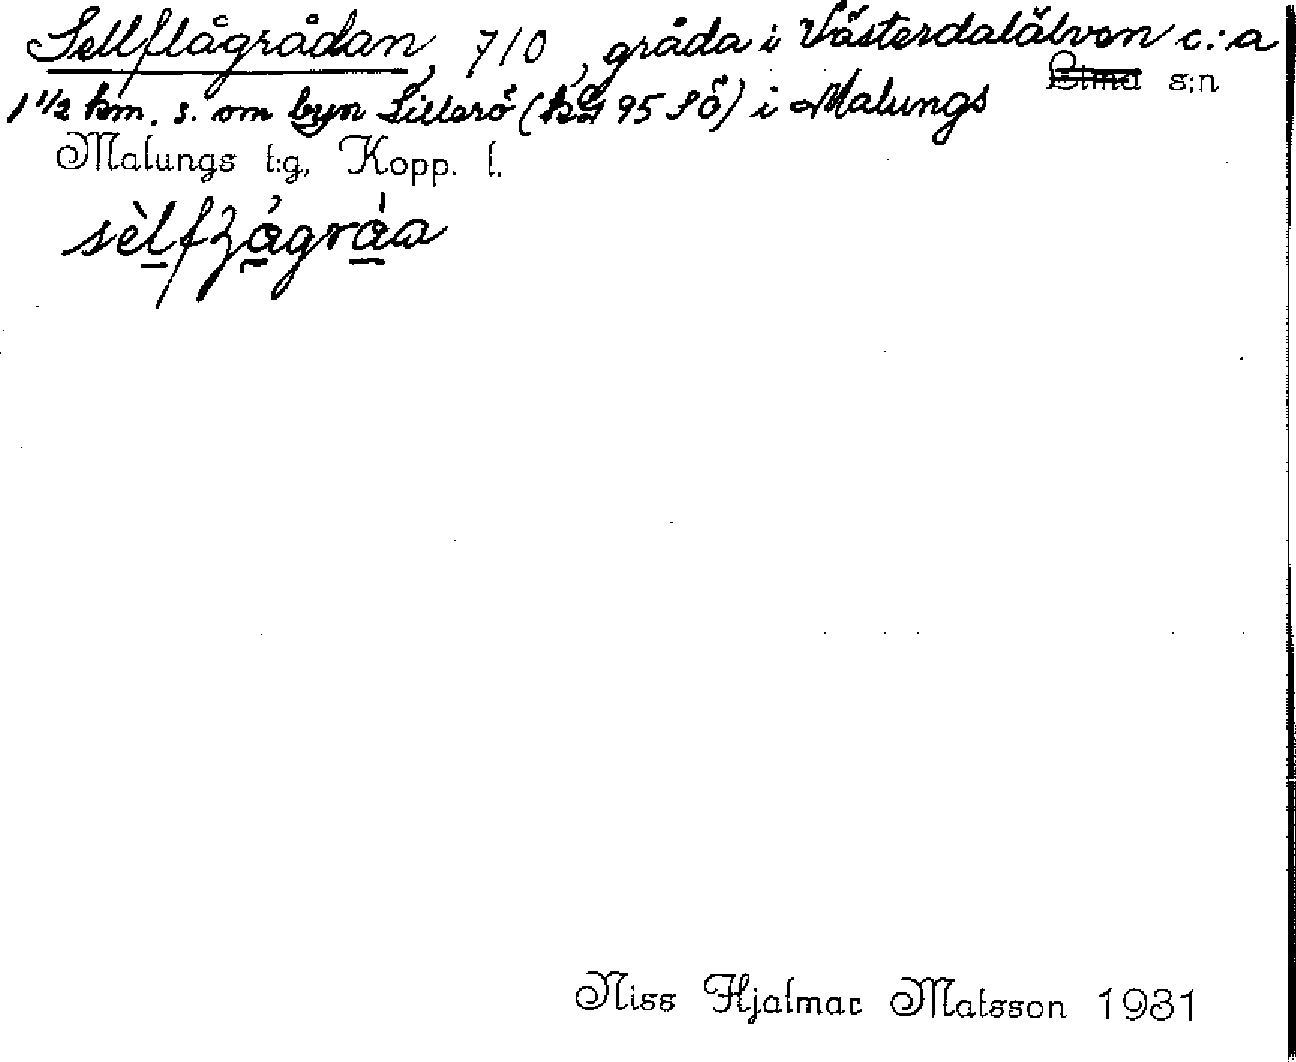 Sellflågrådan, 710, gråda i Västerdalälven c:a
Lima s:n
1 1/2 km. s. om byn Lillerö (kbl 95 SÖ) i Malungs
Malungs t:g, Kopp. l.
sèlfʒågråa
Niss Hjalmar Matsson 1931